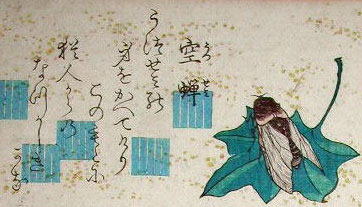 空蝉
うつせみ
うつせみの
身をかへてける
このもとに
猶人からの
なつかしき
かな